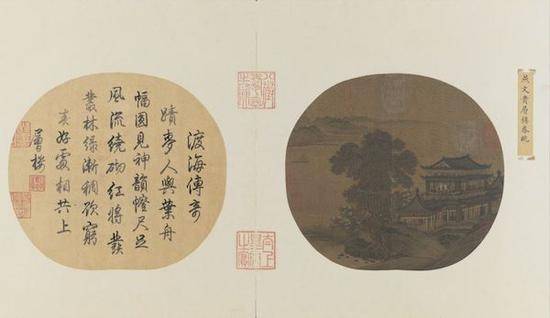 燕文貴層樓春眺
渡海傳奇
蹟麥人與葉舟
幅圓見神韻尺足
風流繞砌紅將發
叢林綠漸稠欲窮
真好處相共上
層樓